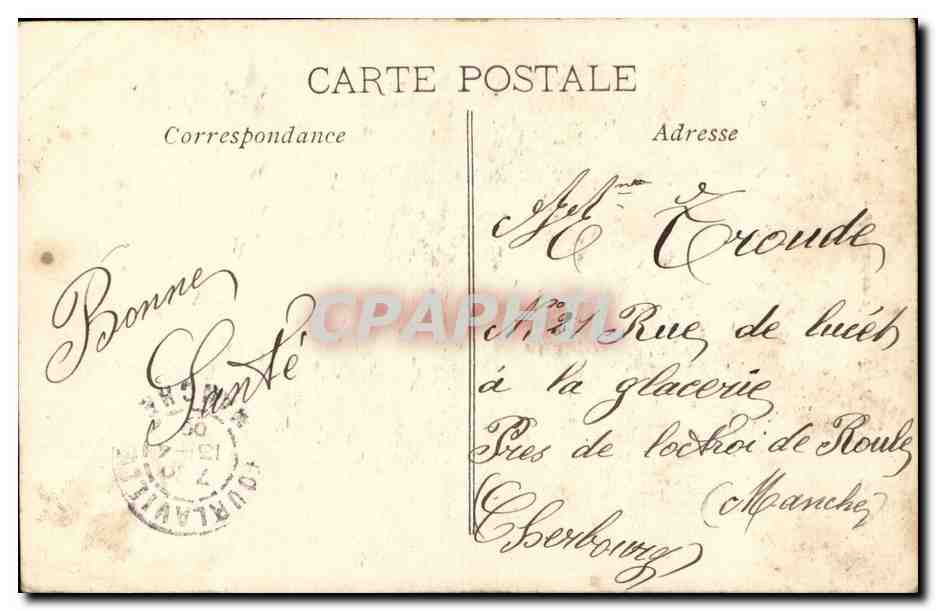 CARTE POSTALE
Correspondance
Adresse
Bonne
Santé
Mme Troude
No 21 Rue de lucét
à la glacerie
Pres de loctroi de Roule
(Manche)
Cherbourg
TOURLAVILLE
MANCHE
CPAPHIL